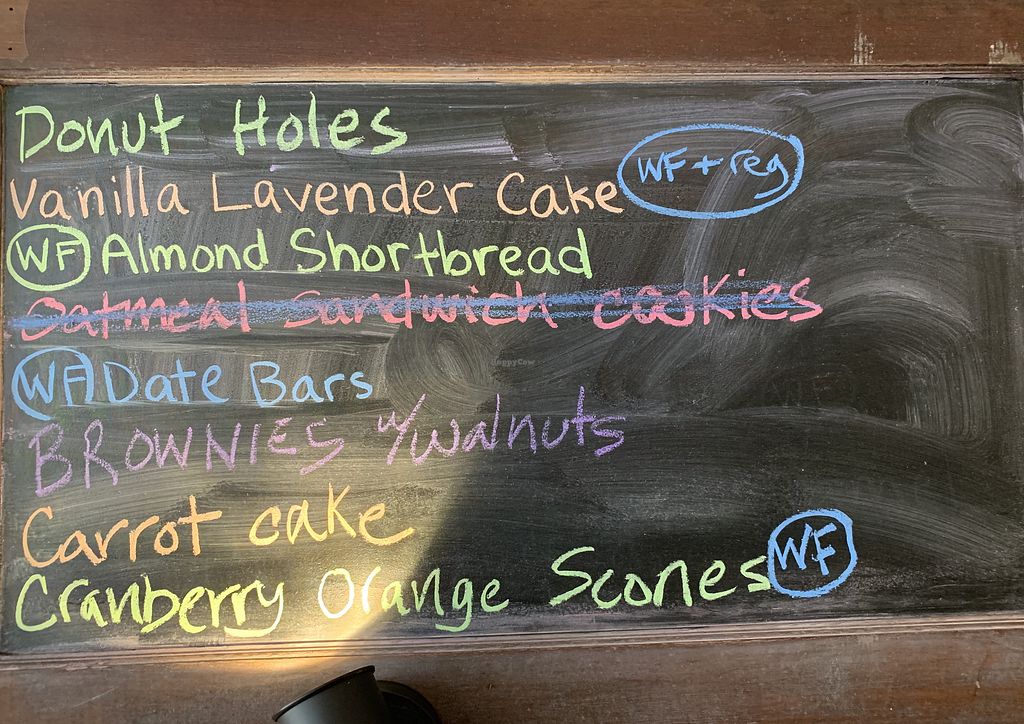 Donut Holes
Vanilla Lavender Cake WF + reg
WF Almond Shortbread
Oatmeal Sandwich cookies
WF Date Bars
BROWNIES w/walnuts
Carrot cake
Cranberry Orange Scones WF
HappyCow